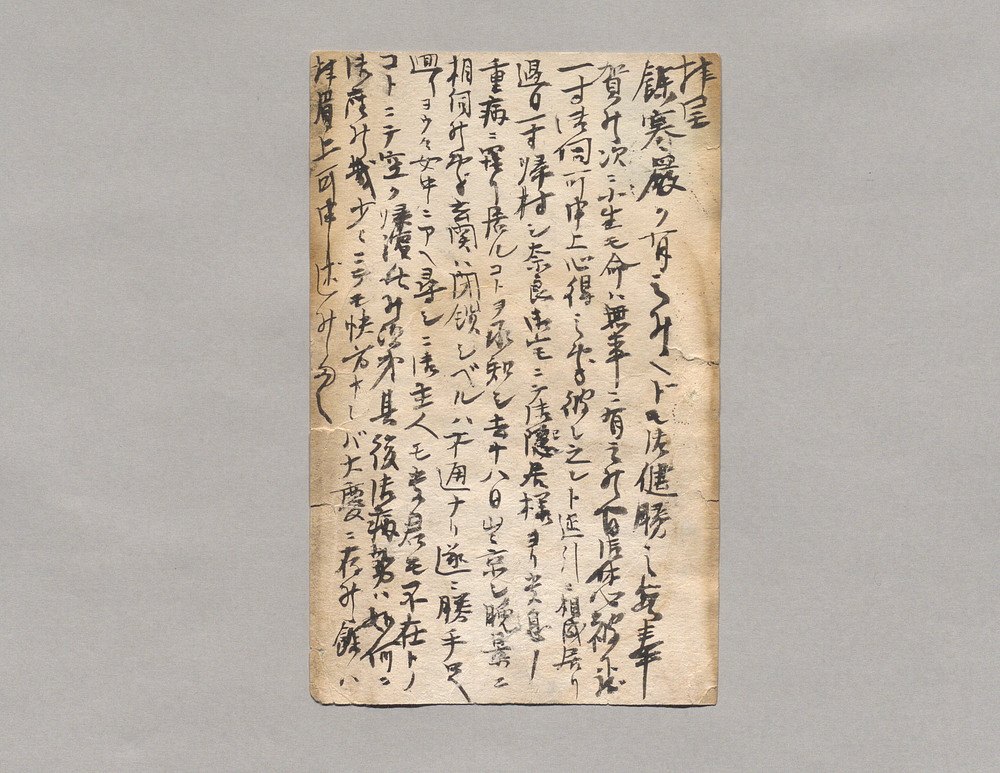 拝呈
餘寒厳ク有之候ヘドモ御健勝之段奉
賀候次ニ小生モ命ハ無事ニ有之候間御休心被下度
一寸御伺可申上心得之処彼レ之レト延引ニ相成居リ
過日一寸帰村シ奈良ニテ御隠居様ヨリ貴息ノ
重病ニ罹リ居ルコトヲ承知シ去十八日出京シ晩景ニ
相伺候処玄関ハ閉鎖シベルハ不通ナリ遂ニ勝手口ヘ
廻リヨウヤク女中ニアヘ尋シニ御主人モ貴君モ不在トノ
コトニテ空ク帰候次第其後御病勢ハ如何ニ
御座候哉少シニテモ快方ナレバ大慶ニ存候餘ハ
拝眉ノ上可申述候